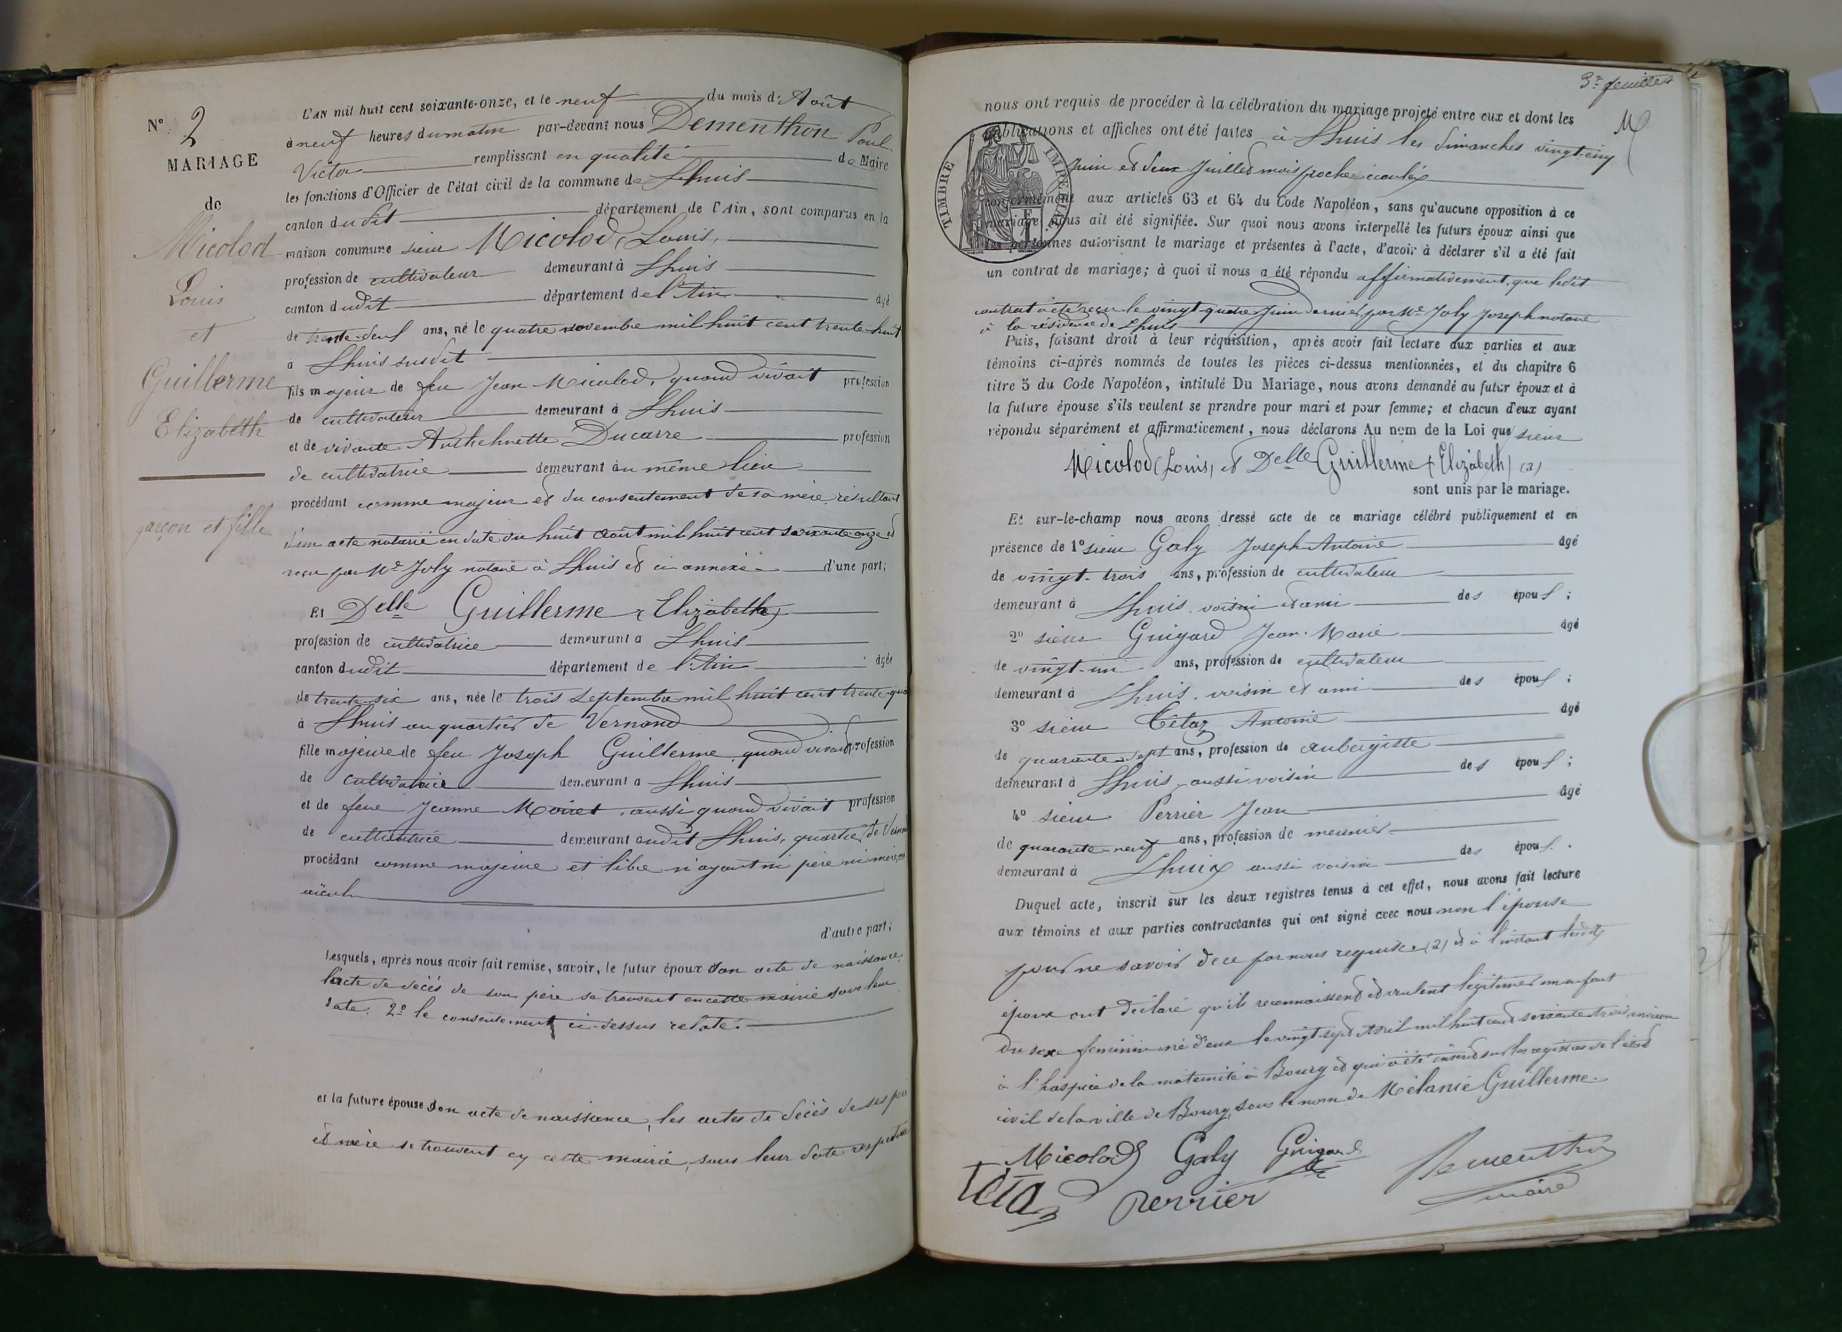 N° 2
MARIAGE
de
Micolod
Louis
et
Guillerme
Elizabeth
garçon et fille
L'AN mil huit cent soixante-onze, et le neuf du mois d'Août
à neuf heures du matin par-devant nous Dementhon Paul
Victor remplissant en qualité de Maire
les fonctions d'Officier de l'état civil de la commune de Lhuis
canton dudit département de l'Ain, sont comparus en la
maison commune sieur Micolod (Louis)
profession de cultivateur demeurant à Lhuis
canton dudit département de l'Ain âgé
de trente-deux ans, né le quatre novembre mil huit cent trente-huit
à Lhuis susdit
fils majeur de feu Jean Micolod, quand vivait profession
de cultivateur demeurant à Lhuis
et de vivante Ducarre profession
de cultivatrice demeurant au même lieu
procédant comme majeur et du consentement de sa mère résultant
d'un acte notarié en date du huit août mil huit cent soixante onze et
reçu par Me Joly notaire à Lhuis et ci annexé d'une part;
Et Delle Guillerme (Elizabeth)
profession de cultivatrice demeurant à Lhuis
canton dudit département de l'Ain âgée
de trente-six ans, née le trois septembre mil huit cent trente-quatre
à Lhuis au quartier de Vernand
fille majeure de feu Joseph Guillerme quand vivait profession
de cultivateur demeurant à Lhuis
et de feue Jeanne Moiret, aussi quand vivait profession
de cultivatrice demeurant audit Lhuis, quartier de
procédant comme majeure et libre n'ayant ni père ni mère, ni
aïeul
d'autre part;
Lesquels, après nous avoir fait remise, savoir, le futur époux d'un acte de naissance,
l'acte de décès de son père se trouvent en cette mairie sous leur
date. 2° le consentement ci-dessus relaté.
et la future épouse son acte de naissance, les actes de décès de ses père
et mère se trouvent en cette mairie, sous leur date respective
3e feuillet
nous ont requis de procéder à la célébration du mariage projeté entre eux et dont les
publications et affiches ont été faites à Lhuis les dimanches vingt-cinq
Juin et deux Juillet mois proche écoulés
conformément aux articles 63 et 64 du Code Napoléon, sans qu'aucune opposition à ce
mariage nous ait été signifiée. Sur quoi nous avons interpellé les futurs époux ainsi que
les personnes autorisant le mariage et présentes à l'acte, d'avoir à déclarer s'il a été fait
un contrat de mariage; à quoi il nous a été répondu affirmativement, que ledit
contrat a été reçu le vingt quatre Juin dernier, par Me Joly Joseph notaire
à la résidence de Lhuis
Puis, faisant droit à leur réquisition, après avoir fait lecture aux parties et aux
témoins ci-après nommés de toutes les pièces ci-dessus mentionnées, et du chapitre 6
titre 5 du Code Napoléon, intitulé Du Mariage, nous avons demandé au futur époux et à
la future épouse s'ils veulent se prendre pour mari et pour femme; et chacun d'eux ayant
répondu séparément et affirmativement, nous déclarons Au nom de la Loi que sieur
Micolod (Louis) et Delle Guillerme (Elizabeth) (2)
sont unis par le mariage.
Et sur-le-champ nous avons dressé acte de ce mariage célébré publiquement et en
présence de 1° sieur Galy Joseph-Antoine âgé
de vingt-trois ans, profession de cultivateur
demeurant à Lhuis, voisin et ami des époux;
2° sieur Guigard Jean-Marie âgé
de vingt-un ans, profession de cultivateur
demeurant à Lhuis, voisin et ami des époux;
3° sieur Tétaz Antoine âgé
de quarante-sept ans, profession de aubergiste
demeurant à Lhuis, aussi voisin des époux;
4° sieur Perrier Jean âgé
de quarante-neuf ans, profession de meunier
demeurant à Lhuis aussi voisin des époux.
Duquel acte, inscrit sur les deux registres tenus à cet effet, nous avons fait lecture
aux témoins et aux parties contractantes qui ont signé avec nous non l'épouse
pour ne savoir de ce par nous requise. (2) et à l'instant lesdits
époux ont déclaré qu'ils reconnaissent et veulent légitimer un enfant
du sexe féminin né d'eux le vingt-sept Avril mil huit cent soixante trois
à l'hospice de la maternité à Bourg et qui a été inscrit sur les registres de l'état
civil de la ville de Bourg, sous le nom de Mélanie Guillerme.
Micolod Galy Guigard
Tétaz Perrier Dementhon
maire
TIMBRE IMPÉRIAL